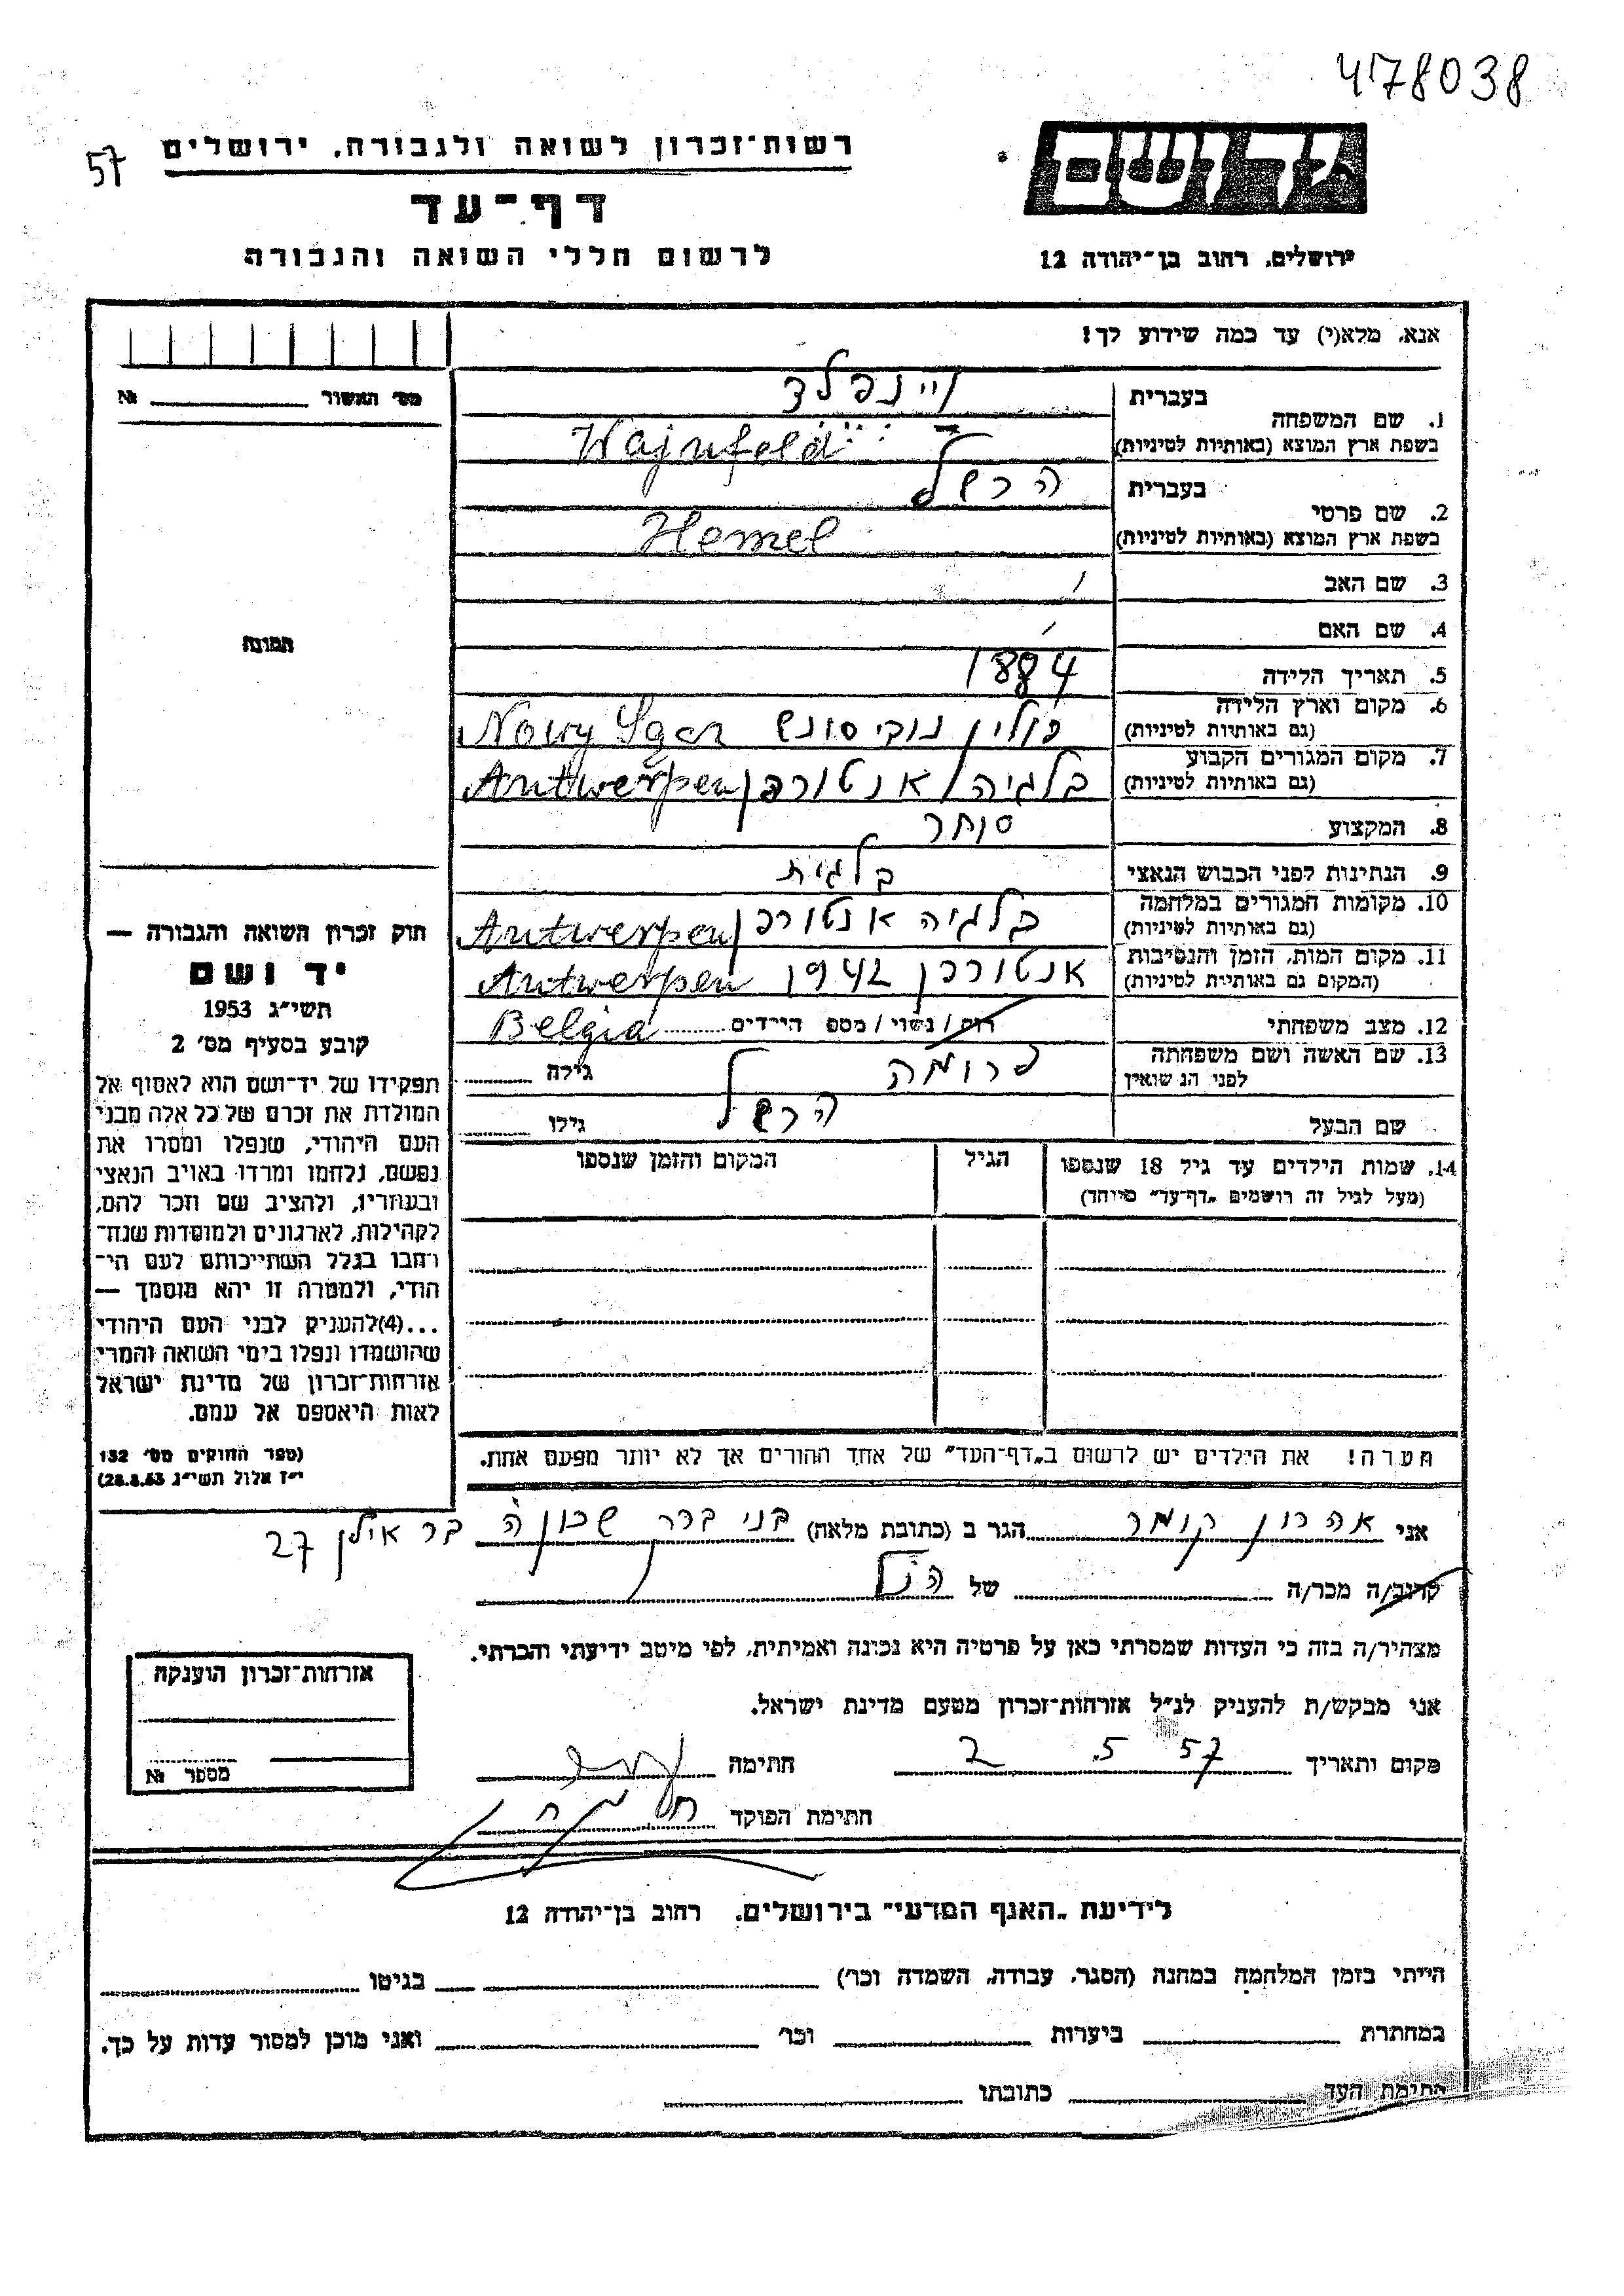 478038
57
רשות־זכרון לשואה ולגבורה, ירושלים
דף־עד
לרשום חללי השואה והגבורה
יד ושם
ירושלים, רחוב בן־יהודה 12
אנא, מלא(י) עד כמה שידוע לך!
מס' האשור № 
1. שם המשפחה בעברית ויינפלד
בשפת ארץ המוצא (באותיות לטיניות) Wajnfeld
2. שם פרטי בעברית הרשל
בשפת ארץ המוצא (באותיות לטיניות)
3. שם האב /
4. שם האם /
תמונה
5. תאריך הלידה 1884
6. מקום וארץ הלידה (גם באותיות לטיניות) פולין נובי סונש Nowy
7. מקום המגורים הקבוע (גם באותיות לטיניות) בלגיה / אנטורפן Antwerpen
8. המקצוע סוחר
9. הנתינות לפני הכבוש הנאצי בלגית
10. מקומות המגורים במלחמה (גם באותיות לטיניות) בלגיה אנטורפן Antwerpen
11. מקום המות, הזמן והנסיבות (המקום גם באותיות לטיניות) אנטורפן 1942 Antwerpen
Belgia
12. מצב משפחתי רוק / נשוי / מספ הילדים
13. שם האשה ושם משפחתה לפני הנשואין פרומה גילה
שם הבעל הרשל גילו
14. שמות הילדים עד גיל 18 שנספו הגיל המקום והזמן שנספו
(מעל לגיל זה רושמים „דף־עד" מיוחד)
חוק זכרון השואה והגבורה —
יד ושם
תשי"ג 1953
קובע בסעיף מס' 2
תפקידו של יד־ושם הוא לאסוף אל
המולדת את זכרם של כל אלה מבני
העם היהודי, שנפלו ומסרו את
נפשם, נלחמו ומרדו באויב הנאצי
ובעוזריו, ולהציב שם וזכר להם,
לקהילות, לארגונים ולמוסדות שנח־
רבו בגלל השתייכותם לעם הי־
הודי, ולמטרה זו יהא מוסמך —
...(4) להעניק לבני העם היהודי
שהושמדו ונפלו בימי השואה והמרי
אזרחות־זכרון של מדינת ישראל
לאות היאספם אל עמם.
(ספר החוקים מס' 132
י"ז אלול תשי"ג 28.8.53)
הערה! את הילדים יש לרשום ב„דף־העד" של אחד ההורים אך לא יותר מפעם אחת.
אני אהרון קומר הגר ב (כתובת מלאה) בני ברק שכונה בר אילן 27
קרוב/ה מכר/ה של הנ"ל
מצהיר/ה בזה כי העדות שמסרתי כאן על פרטיה היא נכונה ואמיתית, לפי מיטב ידיעתי והכרתי.
אני מבקש/ת להעניק לנ"ל אזרחות־זכרון מטעם מדינת ישראל.
מקום ותאריך 2 .5 57 חתימה
חתימת הפוקד
אזרחות־זכרון הוענקה
מספר №
לידיעת „האגף המדעי" בירושלים. רחוב בן־יהודה 12
הייתי בזמן המלחמה במחנה (הסגר, עבודה, השמדה וכו') בגיטו
במחתרת ביערות וכו' ואני מוכן למסור עדות על כך.
חתימת העד כתובתו